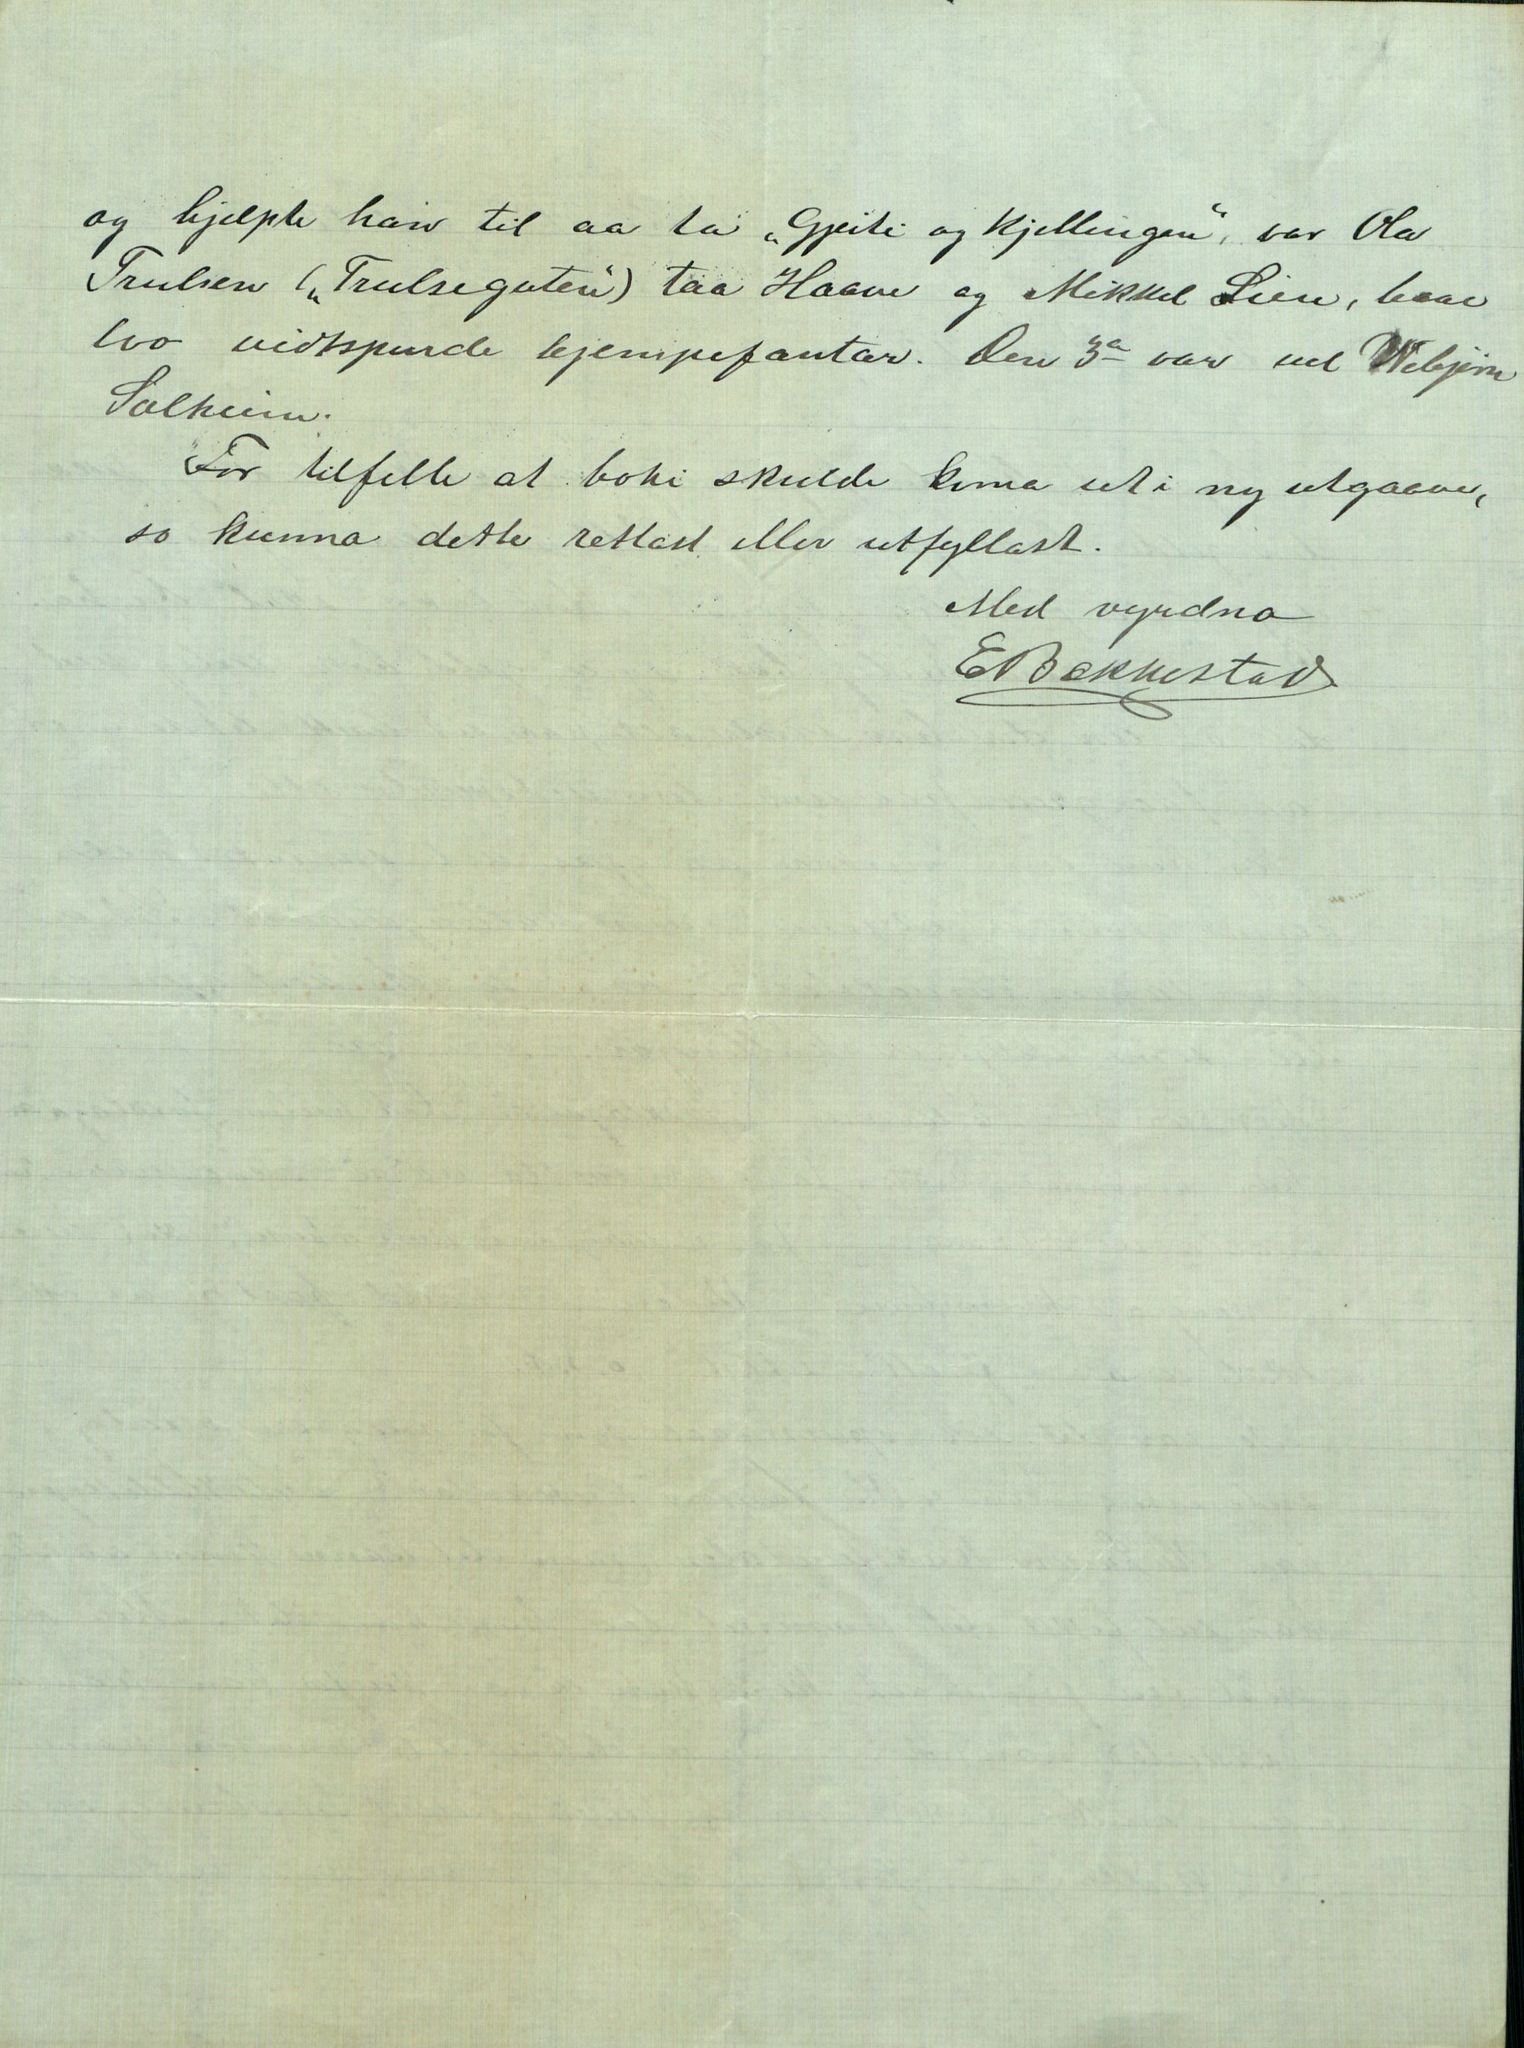 og hjelpte han til aa ta „Gjeiti og Kjellingen“, var Ola
Trulsen („Trulseguten“) taa Haave og Mikkel Lien, baae
tvo vidtspurde kjempefantar. Den 3e var vel Vebjørn
Solheim.
For tilfelle at boki skulde koma ut i ny utgaave,
so kunna dette rettast eller utfyllast.
Med vyrdna
E Bækkestad